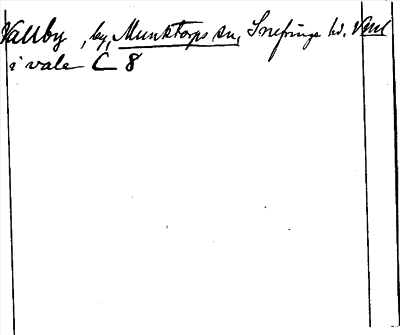 Vallby, by, Munktorps sn, Snefringe hd. Vml
i vale C 8